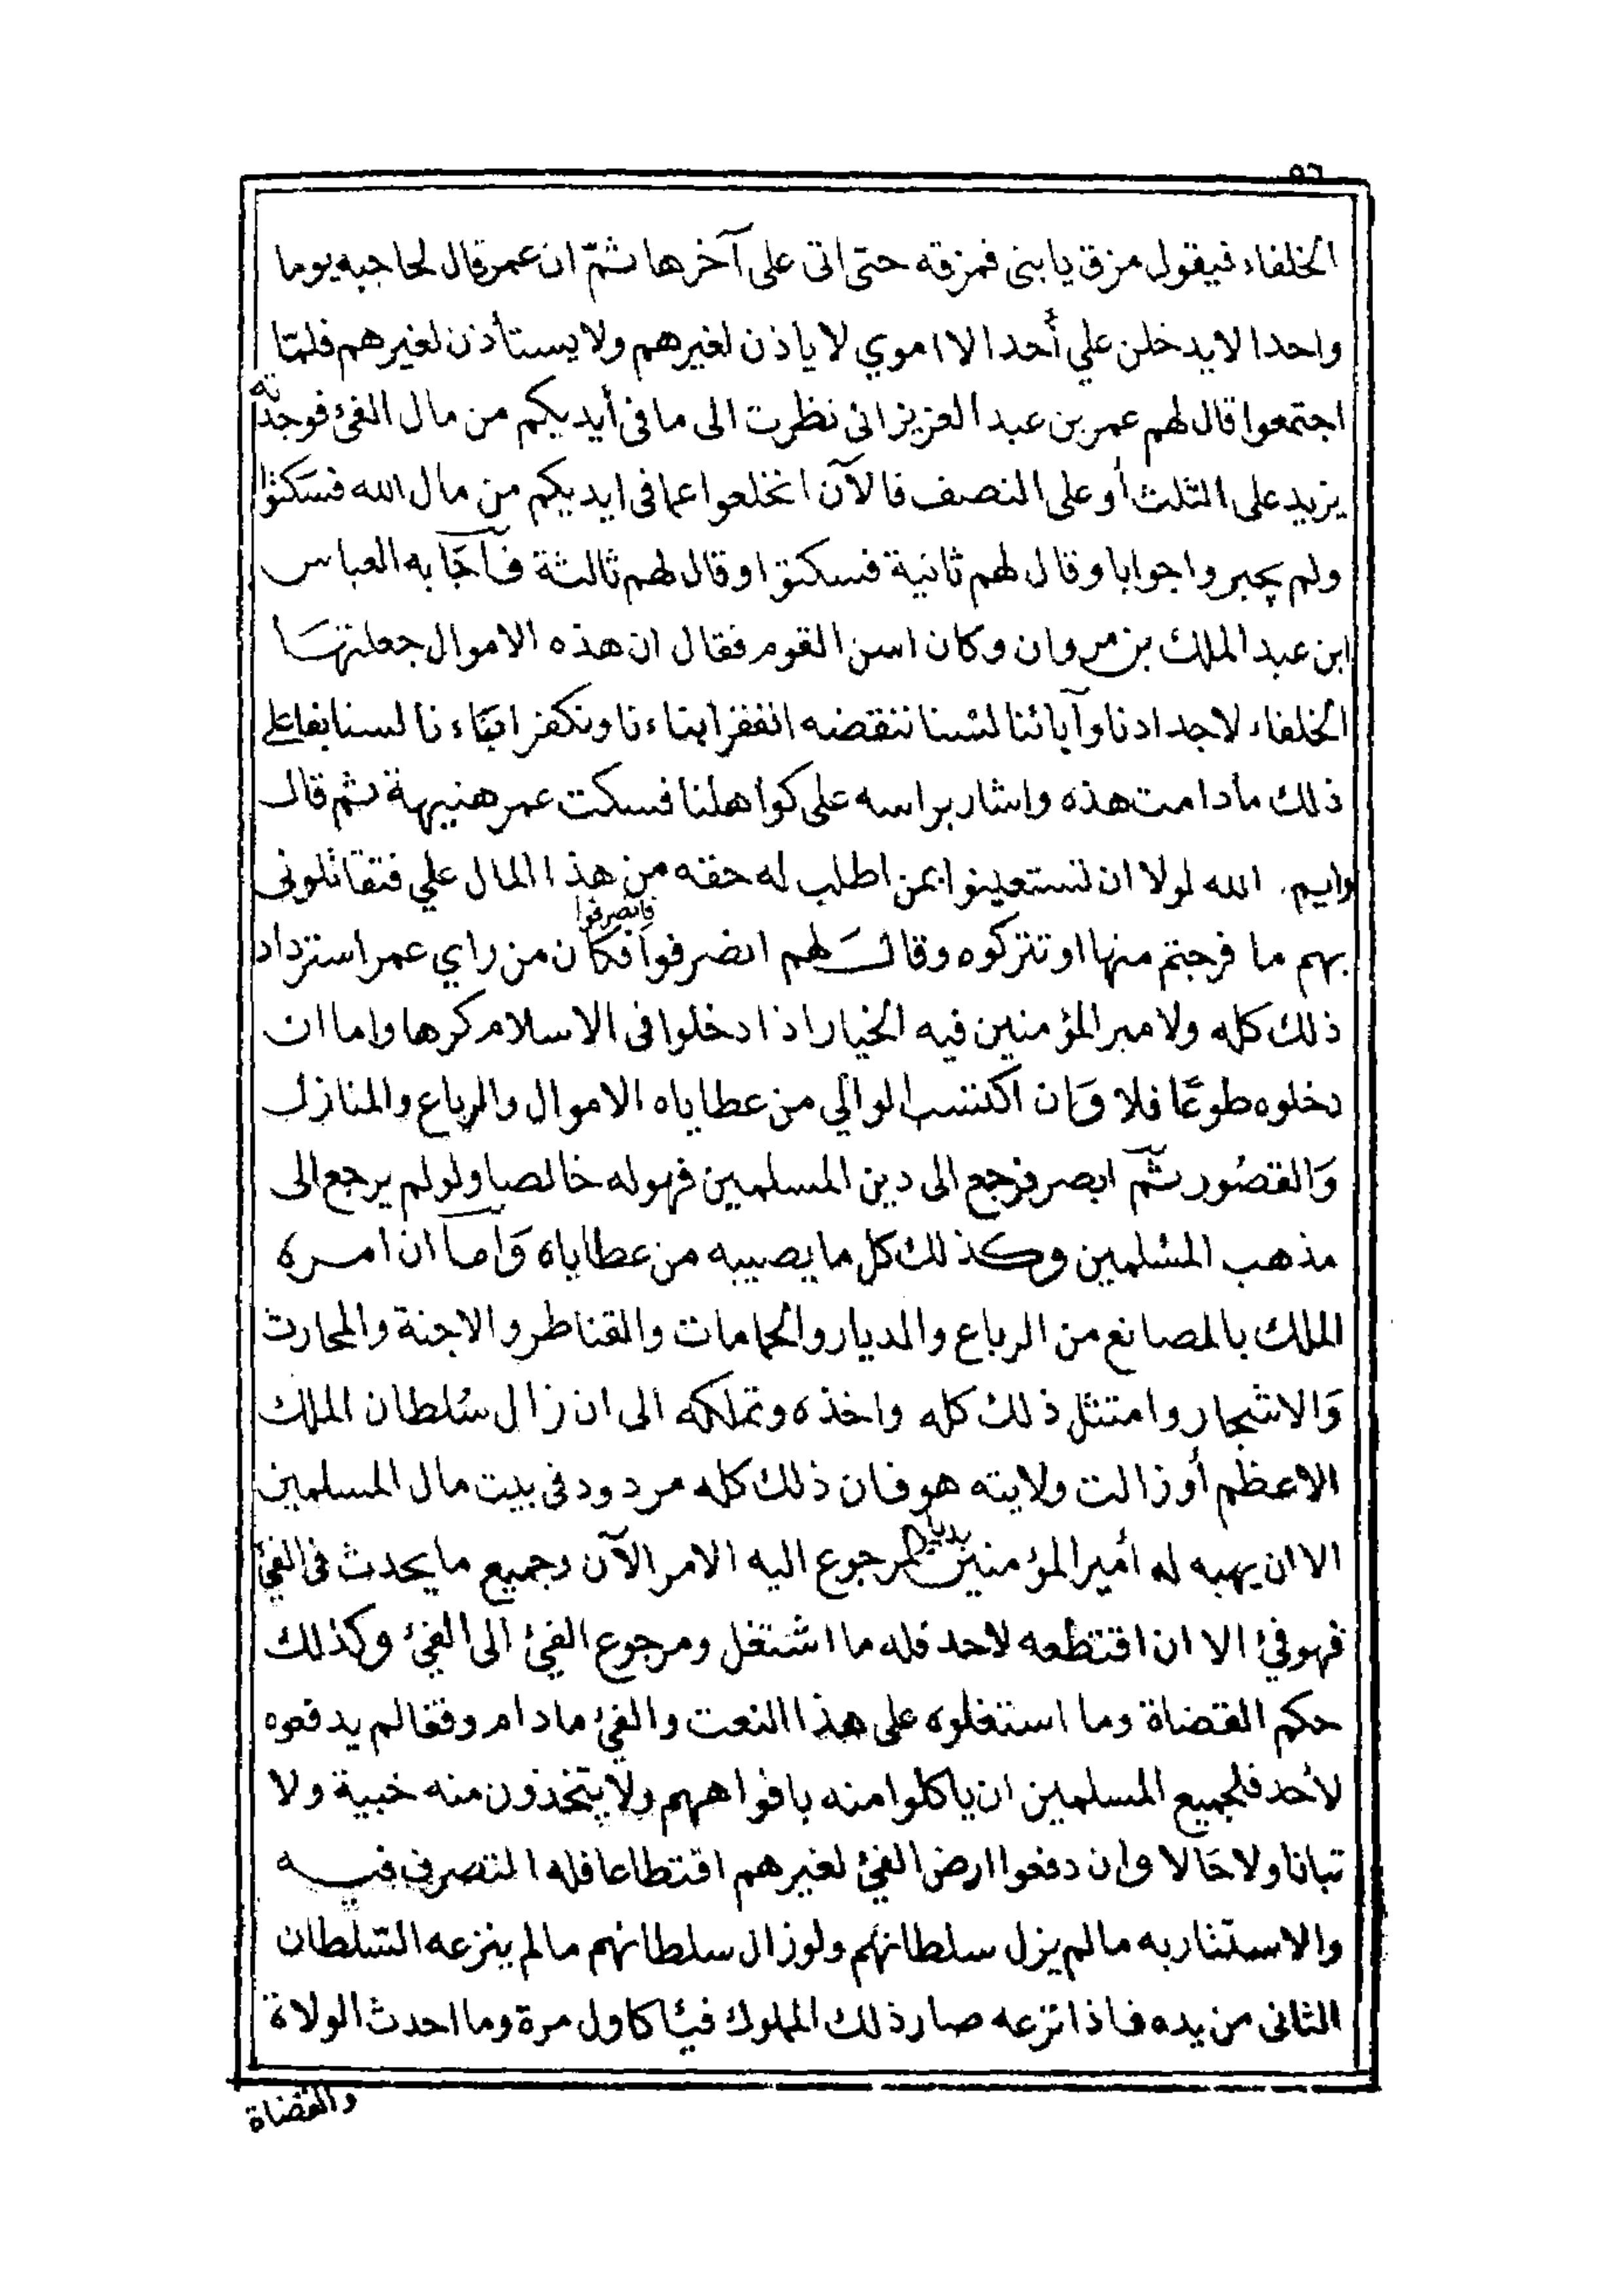 ٥٦
الخلفاء فيقول مزق يا بنى فمزقه حتى اتى على آخرها ثمّ ان عمر قال لحاجبه يوما
واحدا لا يدخلن علي أحد الا اموي لا ياذن لغيرهم ولا يستأذن لغيرهم فلمّا
اجتمعوا قال لهم عمر بن عبد العزيز انى نظرت الى ما فى أيديكم من مال الفئ فوجدته
يزيد على الثلث أو على النصف فالآن انخلعوا عما فى ايديكم من مال الله فسكتوا
ولم يجبروا جوابا وقال لهم ثانية فسكتوا وقال لهم ثالثة فآجَابه العباس
ابن عبد الملك بن مروان وكان اسن القوم فقال ان هذه الاموال جعلتها
الخلفاء لاجدادنا وآبائنا لسنا ننقضه انفقر ابناءنا ونكفر ابآءنا لسنا بفاعلى
ذلك مادامت هذه واشار براسه على كواهلنا فسكت عمر هنيهة ثم قال
وايم الله لولا ان تستعينوا بمن اطلب له حقه من هذا المال علي فتقاتلونى
بهم ما فرجتم منها او تتركوه وقال لهم انصرفوا فانصرفوا فكان من راي عمر استرداد
ذلك كله ولامير المؤمنين فيه الخيار اذا دخلوا فى الاسلام كرها واما ان
دخلوه طوعًا فلا وَان اكتسب الوالي من عطاياه الاموال والرباع والمنازل
وَالقصُور ثمّ ابصر فرجع الى دين المسلمين فهو له خالصا ولو لم يرجع الى
مذهب المسْلمين وكذلك كل ما يصيبه من عطاياه وَامآ ان امره
الملك بالمصانع من الرباع والديار والحمامات والقناطر والاجنة والمحارث
وَالاشجار وامتثل ذلك كله واخذه وتملكه الى ان زال سُلطان الملك
الاعظم أو زالت ولايته هو فان ذلك كله مردود فى بيت مال المسلمين
الا ان يهبه له أمير المؤمنين لمرجوع اليه الامر الآن وجميع ما يحدث فى الفئ
فهو فئ الا ان اقتطعه لاحد فله ما اشتغل ومرجوع الفئ الى الفئ وكذلك
حكم القضاة وما استغلوه على هذا النعت والفئ مادام وقفا لم يدفعوه
لأحد فلجميع المسلمين ان ياكلوا منه بافواههم ولا يتخذون منه خبية ولا
تبانا ولا حَالا وان دفعوا ارض الفئ لغيرهم اقتطاعا فله التصرف فيه
والاستئثار به ما لم يزل سلطانهم ولو زال سلطانهم ما لم ينزعه السّلطان
الثانى من يده فاذا نزعه صار ذلك المملوك فيئا كاول مرة وما احدث الولاة
والقضاة